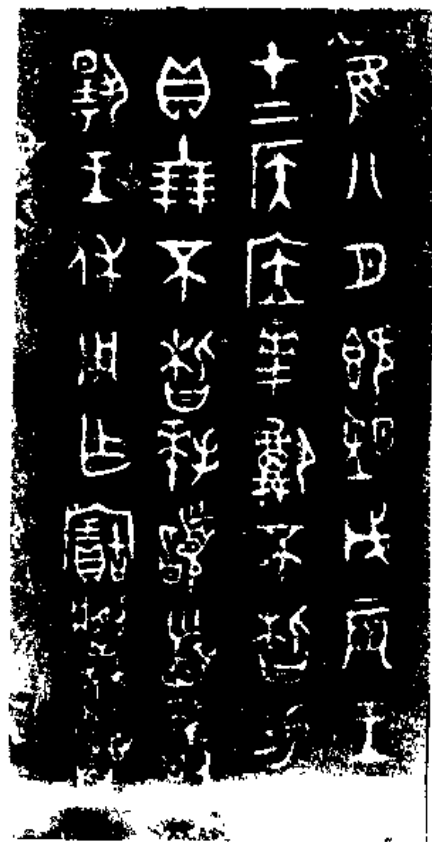 隹八月既望戊辰王
才上侯应𠦪祼不𣐿易
貝十朋不𣐿拜𩒨首敢
揚王休用乍寶彝